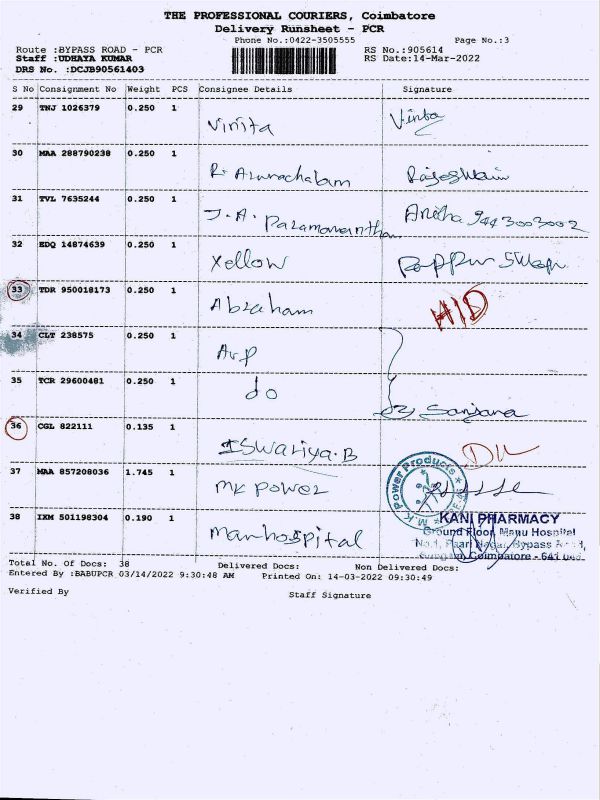 THE PROFESSIONAL COURIERS, Coimbatore
Delivery Runsheet - PCR
Phone No.:0422-3505555 Page No.:3
Route :BYPASS ROAD - PCR RS No.:905614
Staff :UDHAYA KUMAR RS Date:14-Mar-2022
DRS No. :DCJB90561403
S No Consignment No Weight PCS Consignee Details Signature
29 TNJ 1026379 0.250 1 Vinita
30 MAA 288790238 0.250 1 R. Arunachalam
31 TVL 7635244 0.250 1 J.A. Paramananthan Anitha 9443003002
32 EDQ 14874639 0.250 1 Yellow
33 TDR 950018173 0.250 1 Abraham H/D
34 CLT 238575 0.250 1 Arp
35 TCR 29600481 0.250 1 do Sanjana
36 CGL 822111 0.135 1 ISwariya.B
37 MAA 857208036 1.745 1 MK Power
M.K Power Products
38 IXM 501198304 0.190 1 Manhospital
KANI PHARMACY
Ground Floor, Manu Hospital
No.1, Paari Nagar, Bypass
Coimbatore - 641
Total No. Of Docs: 38 Delivered Docs: Non Delivered Docs:
Entered By :BABUPCR 03/14/2022 9:30:48 AM Printed On: 14-03-2022 09:30:49
Verified By Staff Signature